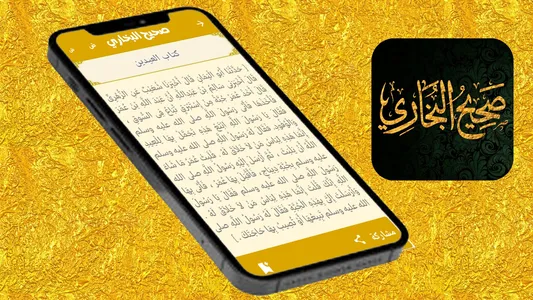 صحيح البخاري
كتاب العيدين
[ حَدَّثَنَا أَبُو الْيَمَانِ قَالَ أَخْبَرَنَا شُعَيْبٌ عَنِ الزُّهْرِيِّ
قَالَ أَخْبَرَنِي سَالِمُ بْنُ عَبْدِ اللَّهِ أَنَّ عَبْدَ اللَّهِ بْنَ عُمَرَ
قَالَ أَخَذَ عُمَرُ جُبَّةً مِنْ إِسْتَبْرَقٍ تُبَاعُ فِي السُّوقِ ،
فَأَخَذَهَا فَأَتَى رَسُولَ اللَّهِ صلى الله عليه وسلم
فَقَالَ يَا رَسُولَ اللَّهِ ابْتَعْ هَذِهِ تَجَمَّلْ بِهَا لِلْعِيدِ
وَالْوُفُودِ. فَقَالَ لَهُ رَسُولُ اللَّهِ صلى الله عليه وسلم
إِنَّمَا هَذِهِ لِبَاسُ مَنْ لاَ خَلاَقَ لَهُ. فَلَبِثَ عُمَرُ مَا شَاءَ
اللَّهُ أَنْ يَلْبَثَ ، ثُمَّ أَرْسَلَ إِلَيْهِ رَسُولُ اللَّهِ صلى الله
عليه وسلم بِجُبَّةِ دِيبَاجٍ، فَأَقْبَلَ بِهَا عُمَرُ ، فَأَتَى بِهَا
رَسُولَ اللَّهِ صلى الله عليه وسلم فَقَالَ يَا رَسُولَ
اللَّهِ إِنَّكَ قُلْتَ إِنَّمَا هَذِهِ لِبَاسُ مَنْ لاَ خَلاَقَ لَهُ
وَأَرْسَلْتَ إِلَيَّ بِهَذِهِ الْجُبَّةِ فَقَالَ لَهُ رَسُولُ اللَّهِ صلى
الله عليه وسلم تَبِيعُهَا أَوْ تُصِيبُ بِهَا حَاجَتَكَ . ]
مشاركة
صَحِيحُ البُخَارِي